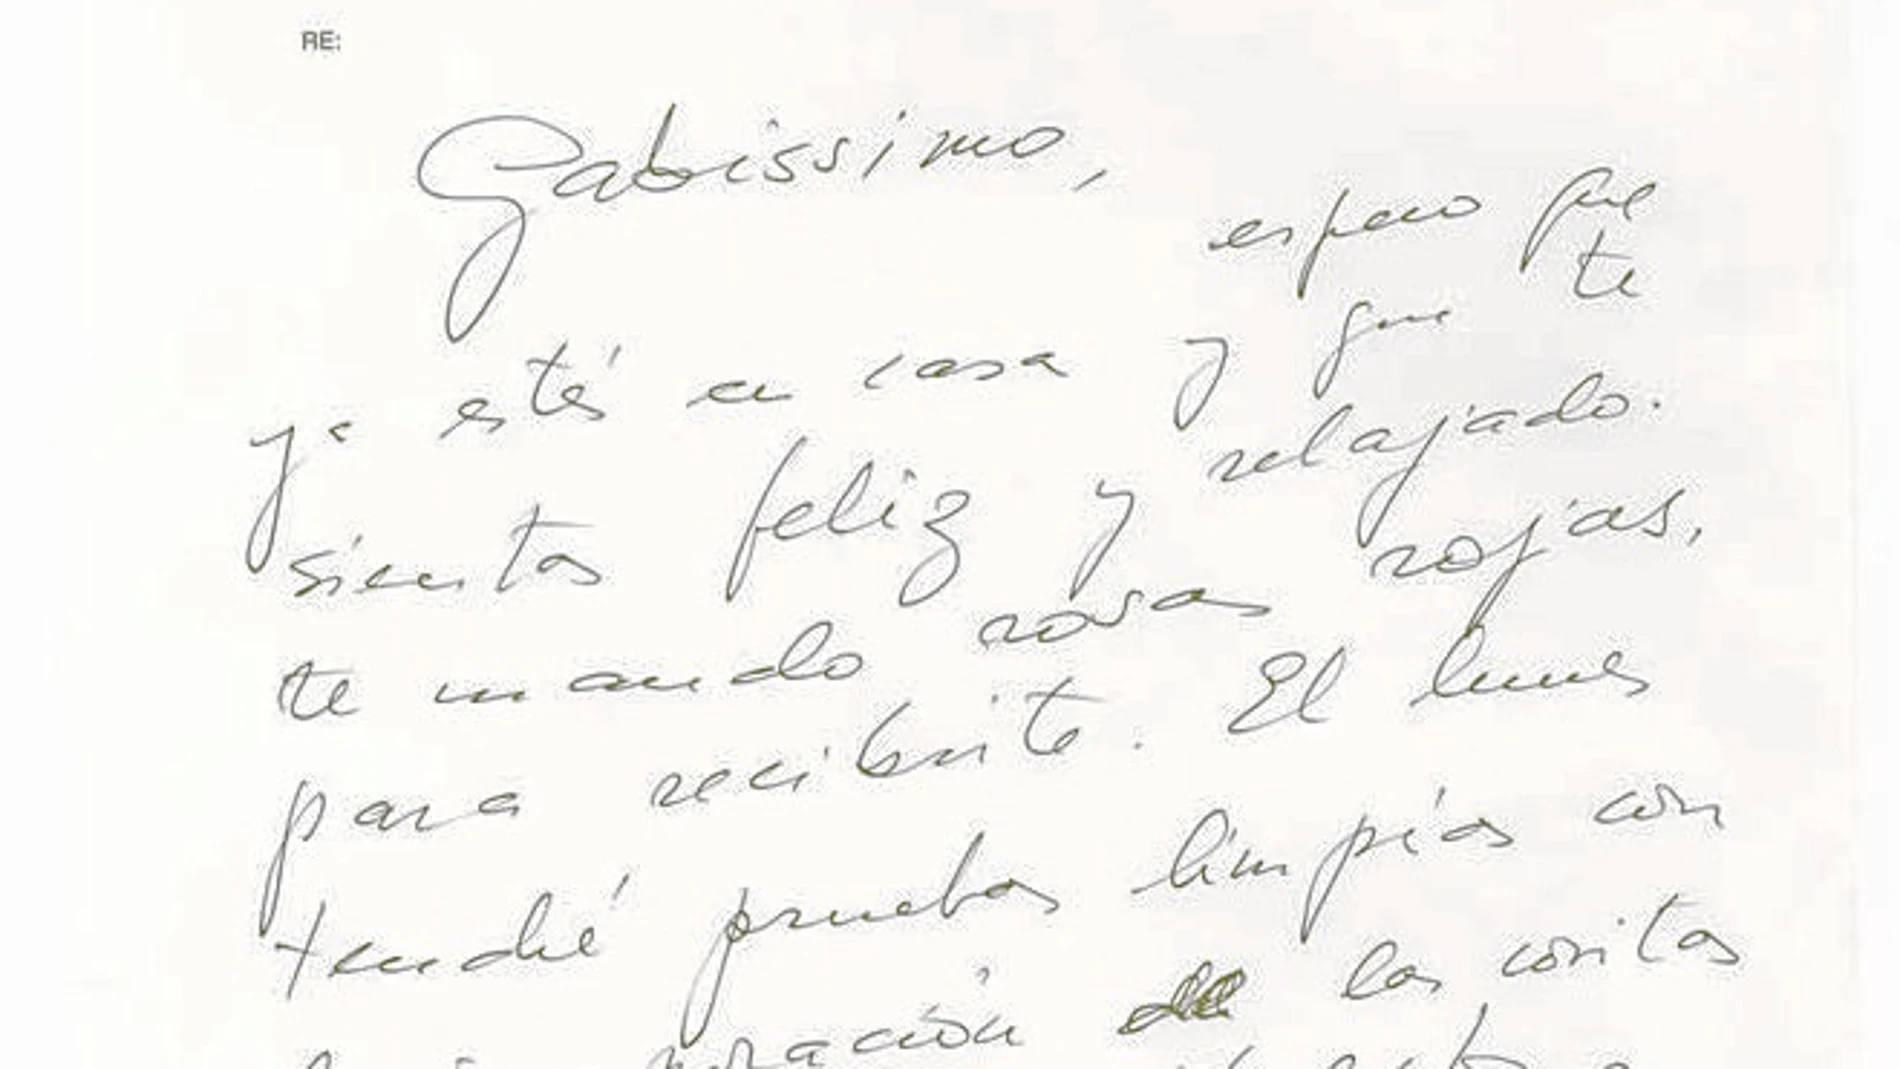 RE:
Gabissimo,
espero que
ya estés en casa y que te
sientas feliz y relajado.
te mando rosas rojas,
para recibirte. El lunes
tendré pruebas limpias con
la incorporación de las cositas